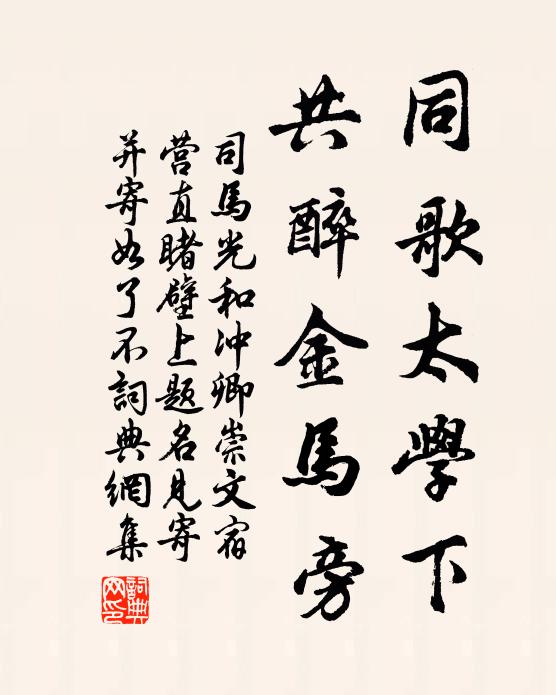 同歌太學下
共醉金馬旁
司馬光和沖卿崇文宿
营直睹壁上題名見寄
并寄如了不詞典網集
詞典
网印